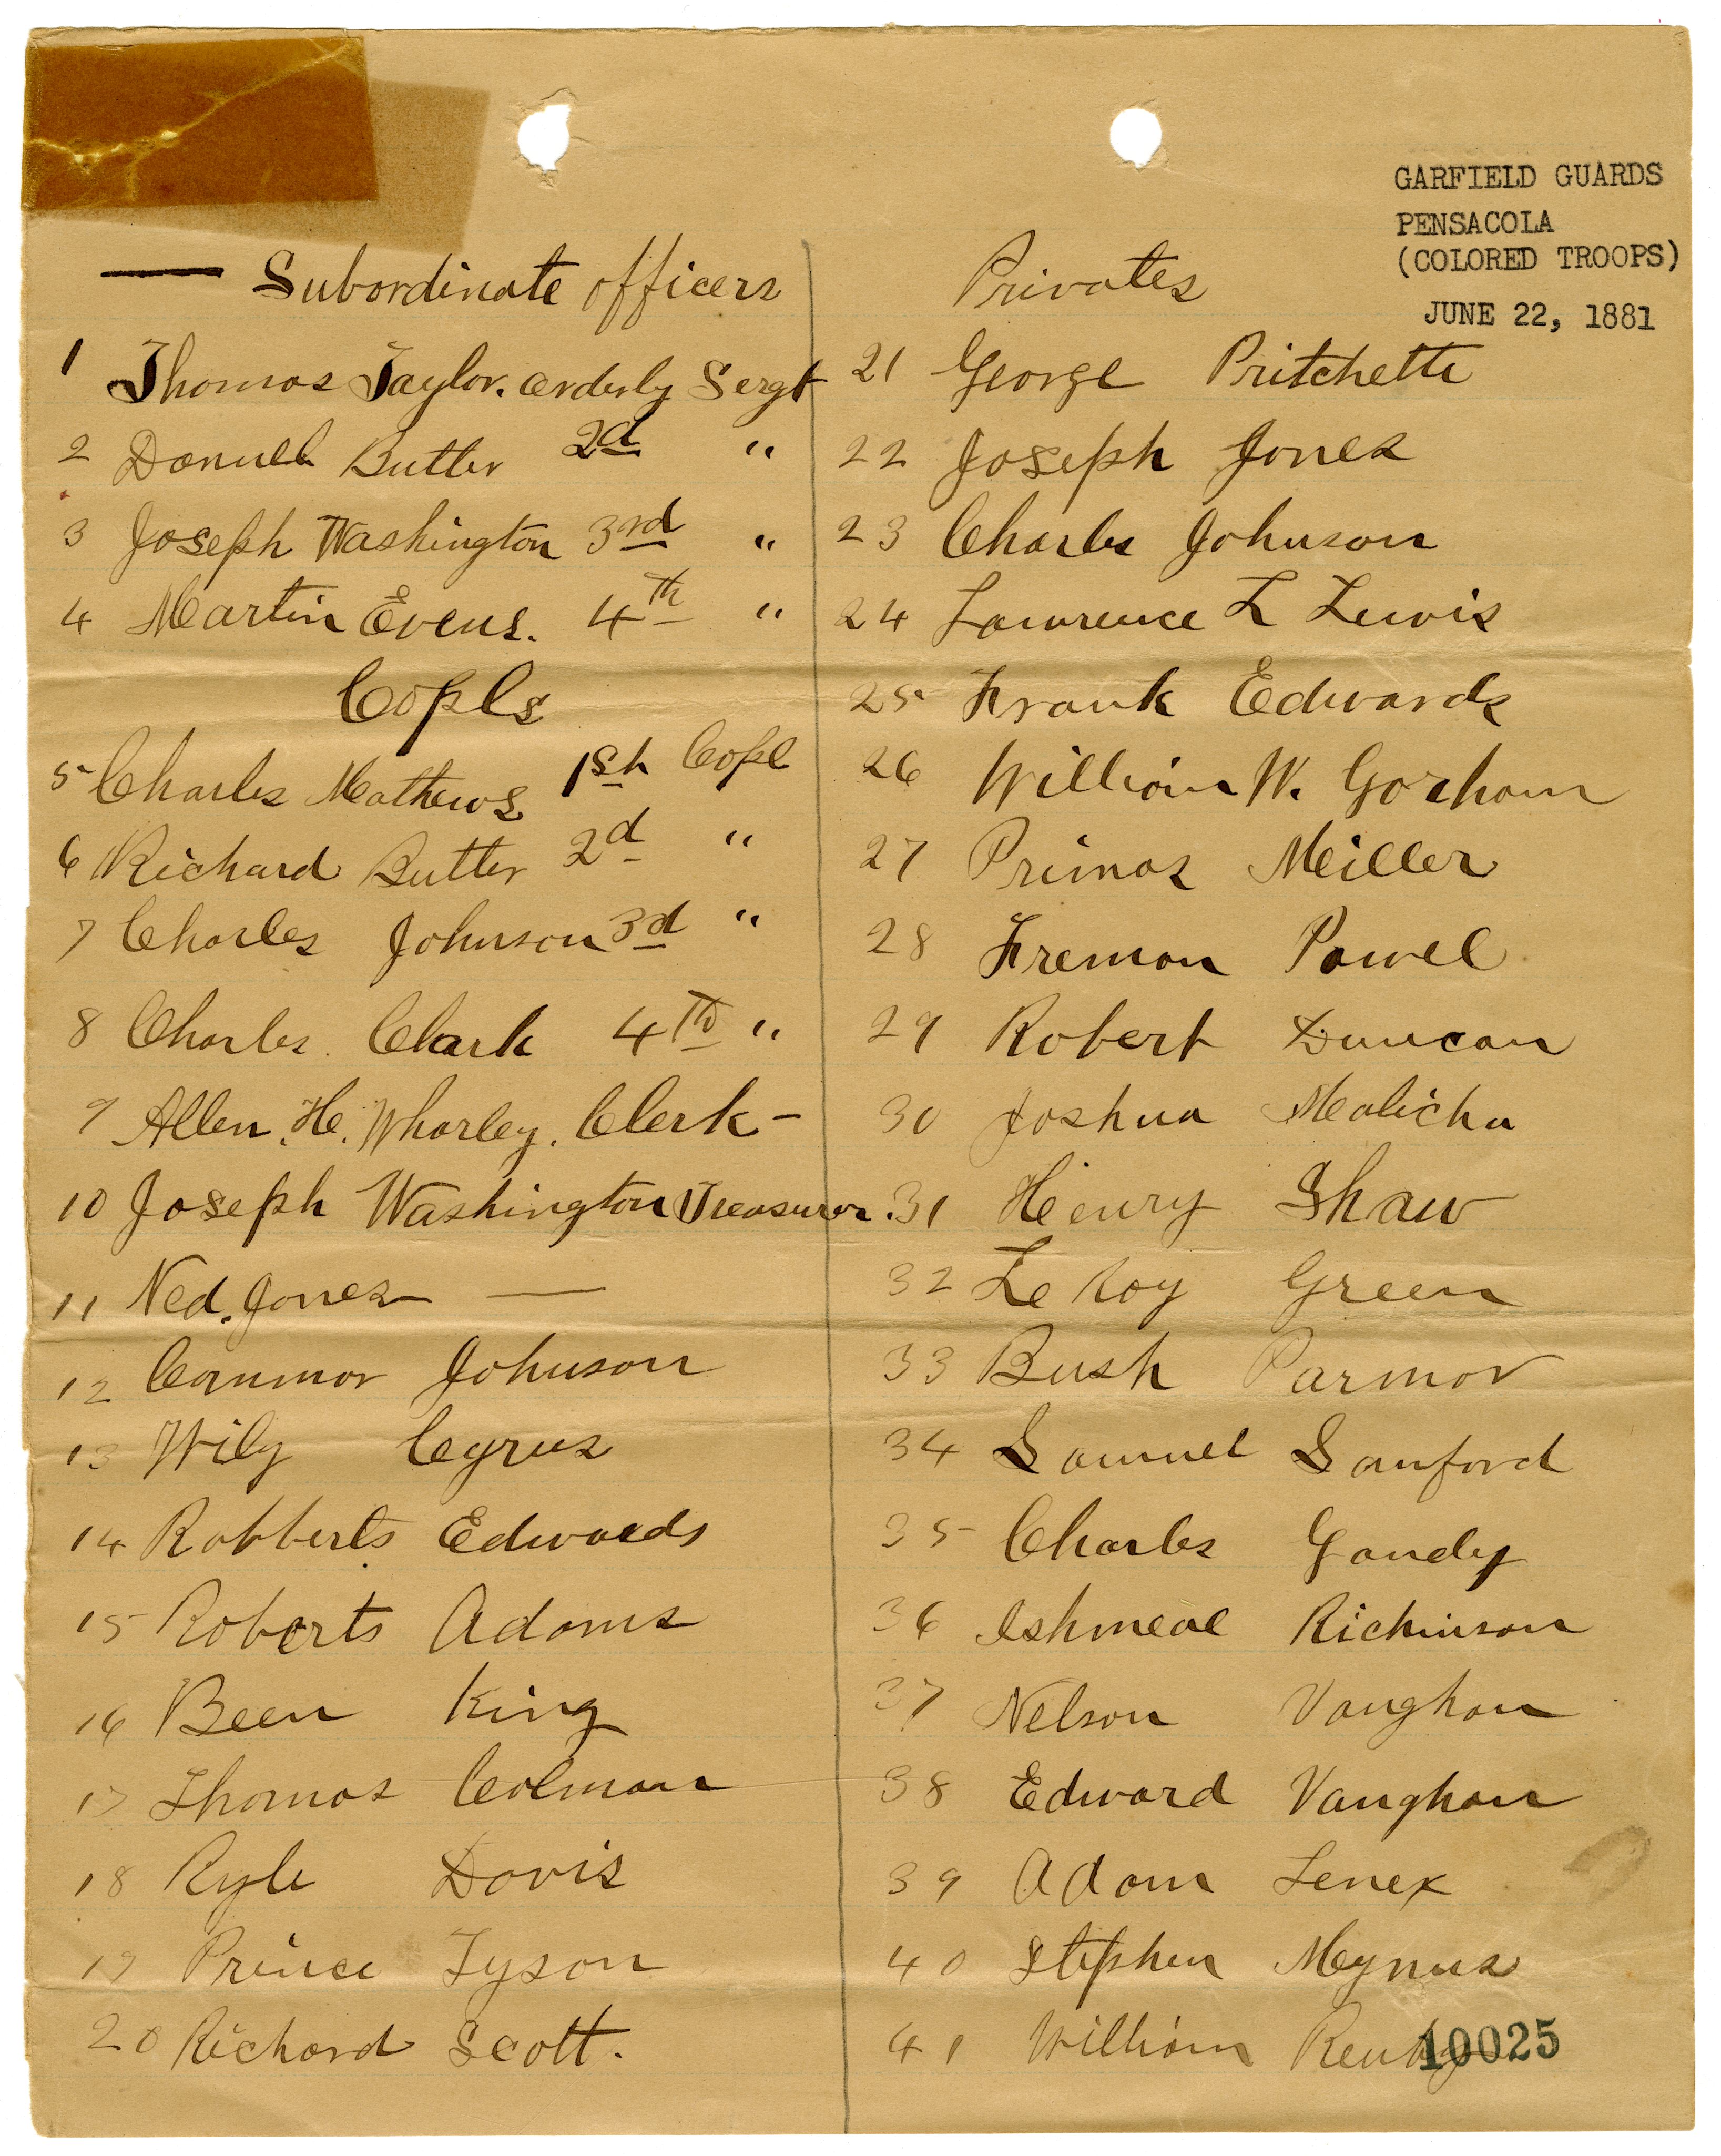 GARFIELD GUARDS
PENSACOLA
(COLORED TROOPS)
JUNE 22, 1881
— Subordinate officers
1 Thomas Taylor. orderly Sergt
2 Danuel Butler 2d "
3 Joseph Washington 3rd "
4 Martin Evens. 4th "
Copls
5 Charles Mathews 1st Copl
6 Richard Butler 2d "
7 Charles Johnson 3d "
8 Charles Clark 4th "
9 Allen. H. Whorley. Clerk -
10 Joseph Washington Treasurer.
11 Ned. Jones —
12 Conmor Johnson
13 Wily Cyrus
14 Robberts Edwards
15 Roberts Adams
16 Been King
17 Thomas Colman
18 Ryle Davis
19 Prince Tyson
20 Richard Scott.
Privates
21 George Pritchette
22 Joseph Jones
23 Charles Johnson
24 Lawrence L Lewis
25 Frank Edwards
26 William W. Gorham
27 Primas Meiller
28 Freman Powel
29 Robert Duncan
30 Joshua Malicha
31 Henry Shaw
32 Le Roy Green
33 Bush Parmor
34 Samuel Sanford
35 Charles Gandy
36 Ishmeal Richinson
37 Nelson Vaughan
38 Edward Vaughan
39 Adam Lenex
40 Stephen Meynus
41 William
10025